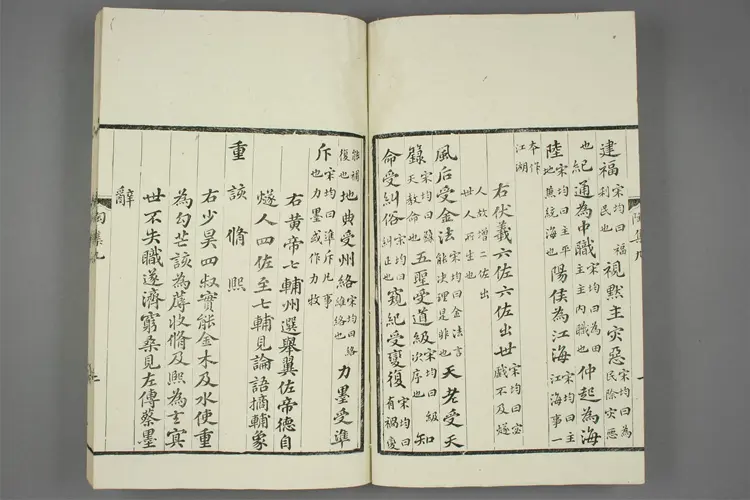 建福宋均曰福利民也視默主災惡宋均曰為民除災惡
也紀通為中職宋均曰為田主主內職也仲起為海
陸宋均曰主平地兼統海也陽侯為江海宋均曰主江海事一
本作江湖
右伏羲六佐六佐出世宋均曰宓戲不及燧
人故增二佐出世人所生也
風后受金法宋均曰金法言能決理是非也天老受天
籙宋均曰籙天教命也五聖受道級宋均曰級次序也知
命受糾俗宋均曰糾正也窺紀受變復宋均曰有禍變
能補復也地典受州絡宋均曰絡維絡也力墨受準
斥宋均曰準斥凡事也力墨或作力牧
右黄帝七輔州選舉翼佐帝德自
燧人四佐至七輔見論語摘輔象
重 該 脩 熙
右少昊四叔實能金木及水使重
為勾芒該為蓐收脩及熙為玄冥
世不失職遂濟窮桑見左傳蔡墨
辭